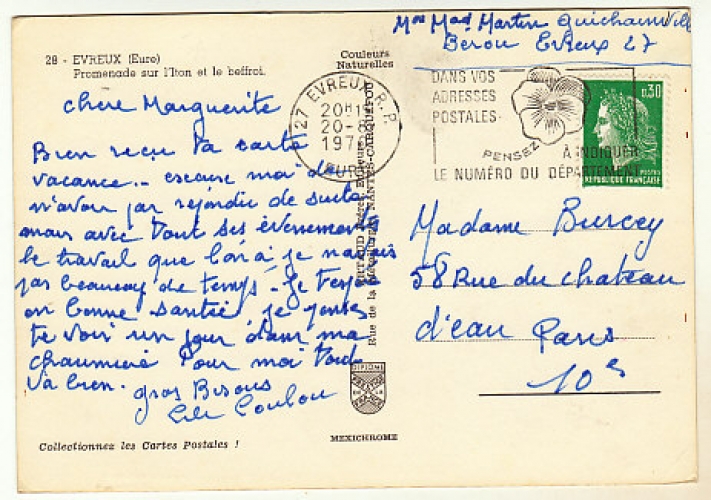 Mme Mad Martin Guichainville
Berou Evreux 27
28 - EVREUX (Eure)
Promenade sur l'Iton et le beffroi.
Couleurs
Naturelles
27 EVREUX R. P.
20H
20-8
197
EURE
DANS VOS
ADRESSES
POSTALES
PENSEZ
À INDIQUER
LE NUMÉRO DU DÉPARTEMENT
0,30
POSTES
REPUBLIQUE FRANÇAISE
chere Marguerite
Bien reçu ta carte
vacance.. excuse moi de
n'avoir pas rejondie de suite
mais avec tout ses évenements
le travail que l'on a je n'avais
pas beaucoup de temps. Je t'espere
en bonne santié. je
te voir un jour dans ma
chaumiere Pour moi tout
va bien. gros Bisous
Lili Loulou
ARTAUD Frères, Editeurs
Rue de la NANTES-CARQUEFOU
Madame Burcey
58 Rue du chateau
d'eau Paris
10e
DIPLOME
PRESTIGE
DE LA
FRANCE
MEXICHROME
Collectionnez les Cartes Postales !